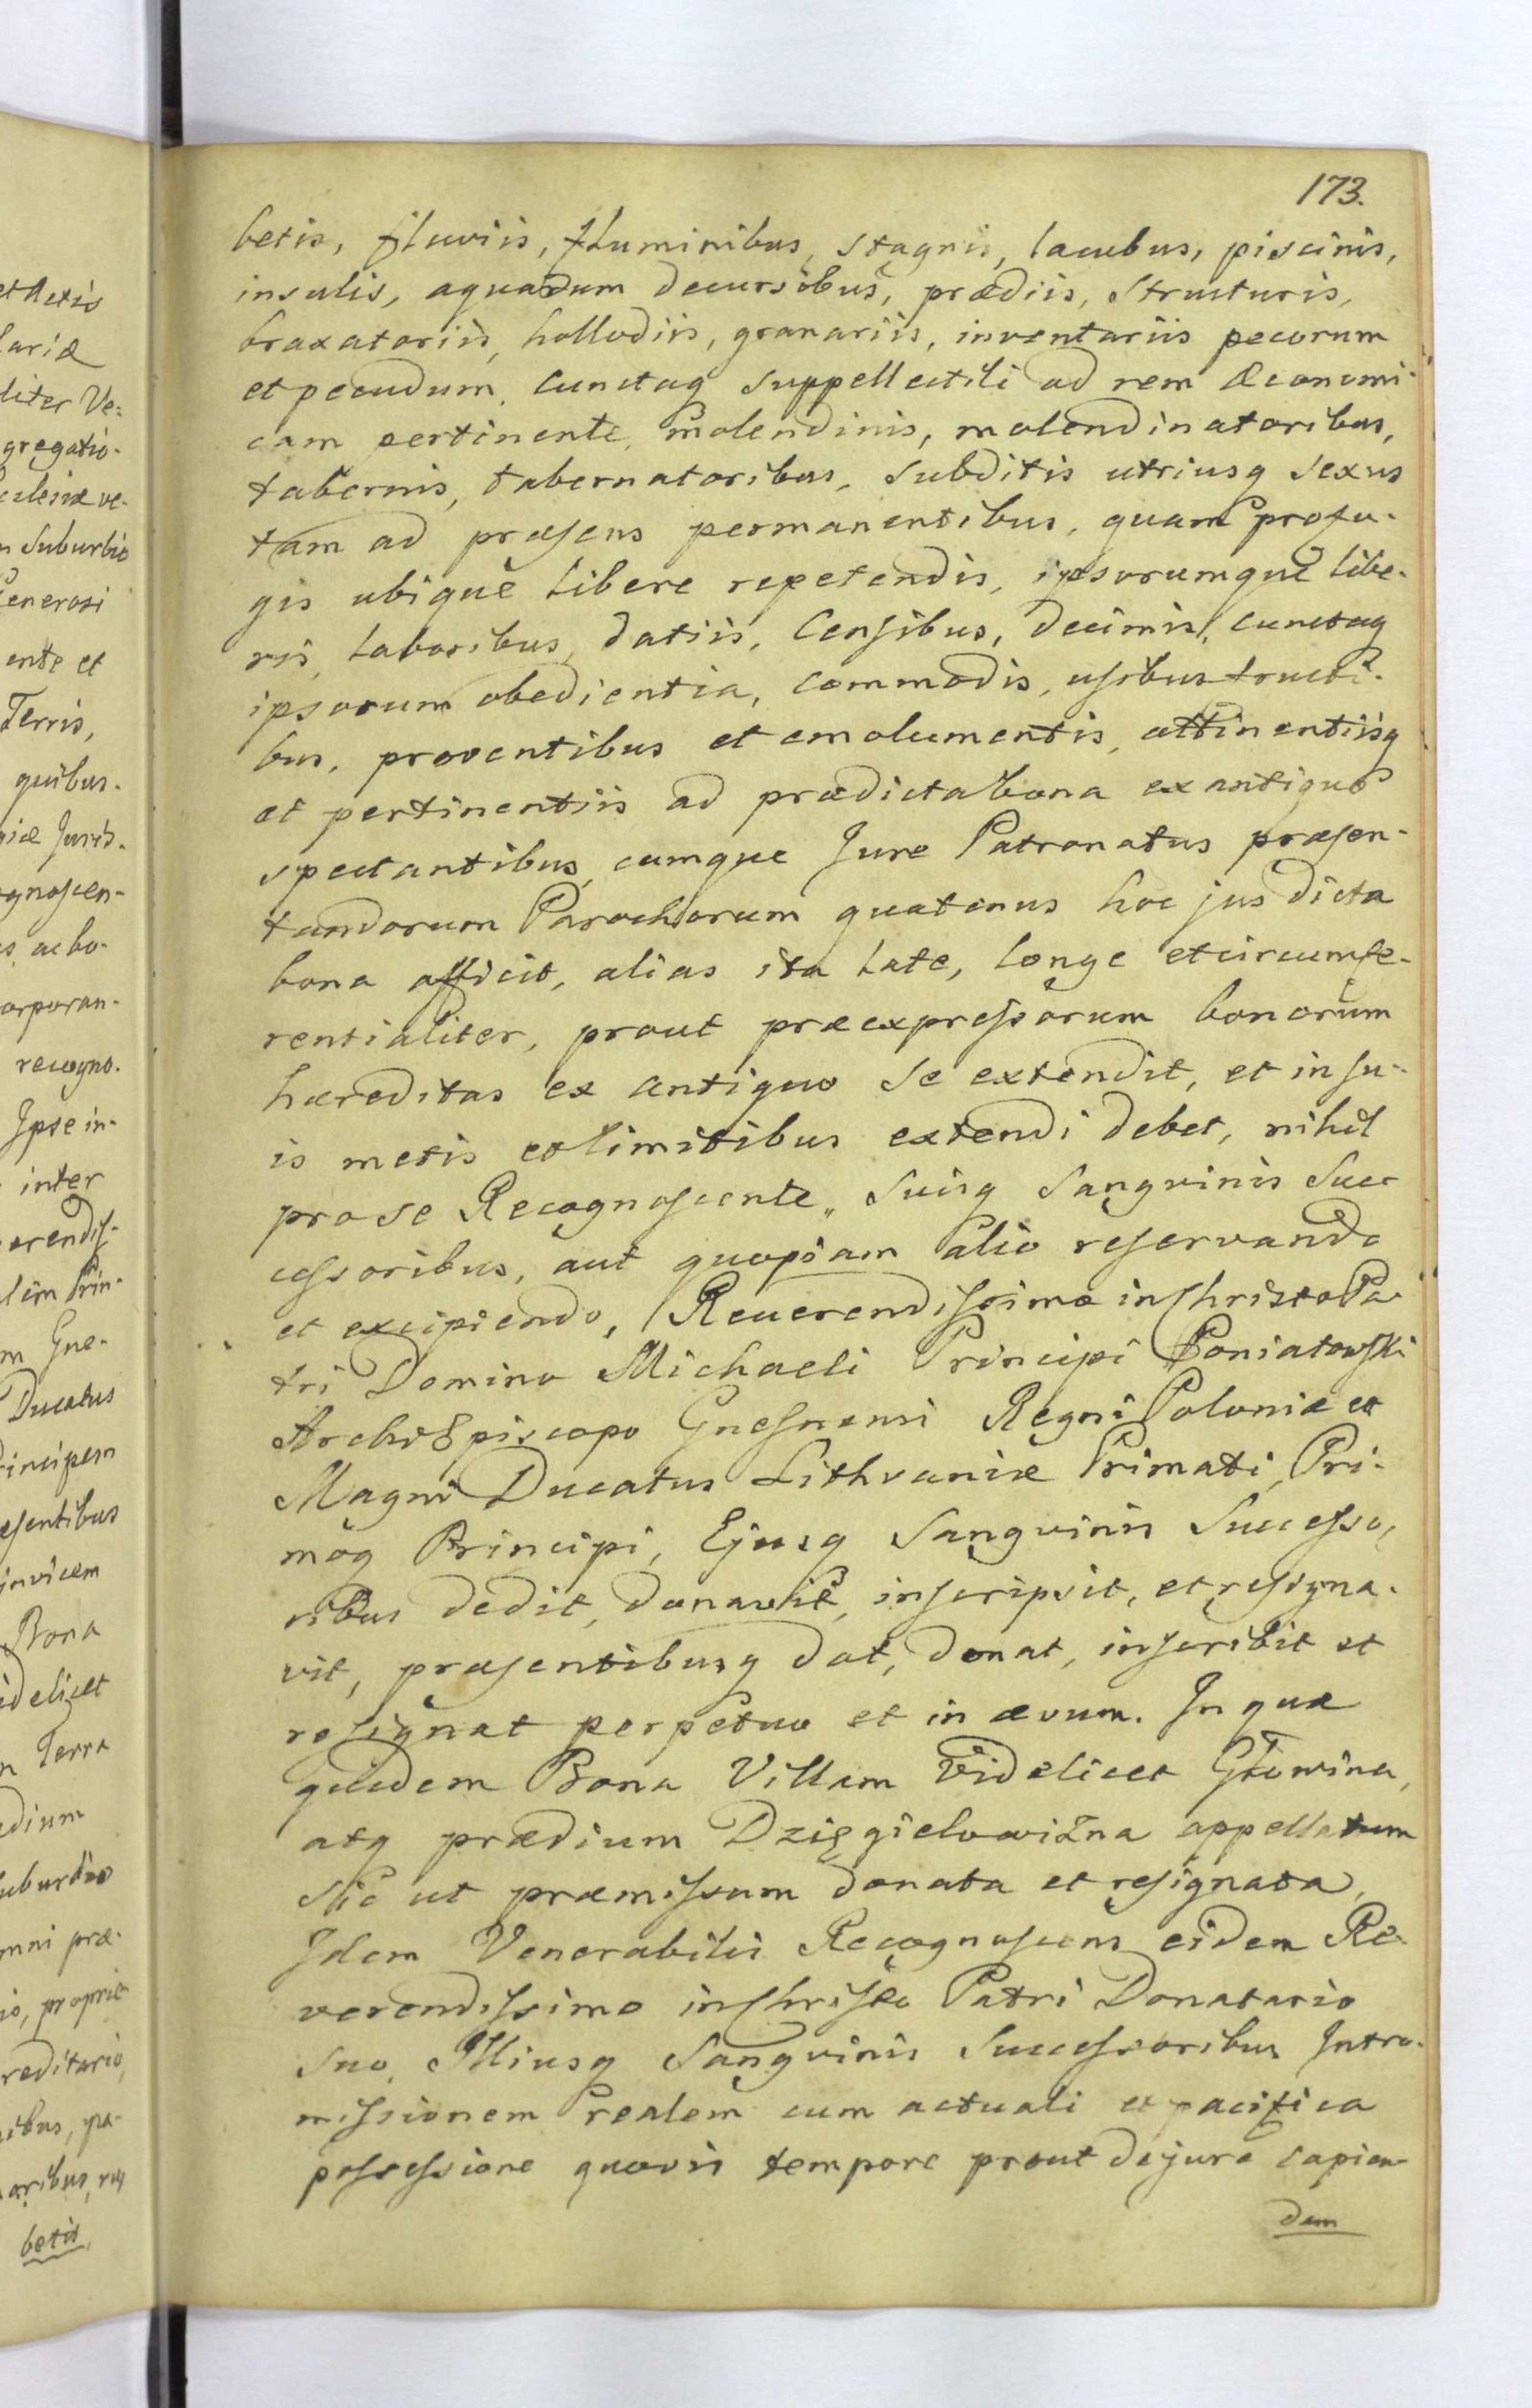 173.
betis, fluviis, fluminibus, stagnis, lacubus, piscinis,
insulis, aquarum decursibus, prædiis, structuris,
braxatoriis, hollodiis, granariis, inventariis pecorum
et pecudum, cunctaq suppellectili ad rem Œconomi-
cam pertinente, molendinis, molendinatoribus,
tabernis, tabernatoribus, subditis utriusq sexus
tam ad præsens permanentibus, quam profu-
gis ubique libere repetendis, ipsorumque libe-
ris, laboribus, datiis, Censibus, decimis, cunctaq
ipsorum obedientia, commodis, usibus fructi-
bus, proventibus et emolumentis, attinentiisq
et pertinentiis ad prædicta bona ex antiquo
spectantibus, cumque Jure Patronatus præsen-
tandorum Parochorum quatenus hoc jus dicta
bona afficit, alias ita late, longe et circumfe-
rentialiter, prout præexpressorum bonorum
hæreditas ex antiquo se extendit, et in su-
is metis et limitibus extendi debet, nihil
pro se Recognoscente, suisq Sangvinis Suc-
cessoribus, aut quopiam alio reservando
et excipiendo, Reverendissimo in Christo Pa-
tri Domino Michaeli Principi Poniatowski
ArchiEpiscopo Gnesnensi Regni Poloniæ et
Magni Ducatus Lithvaniæ Primati, Pri-
moq Principi, Ejusq Sangvinis Successo-
ribus dedit, donavit, inscripsit, et resigna-
vit, præsentibusq dat, donat, inscribit et
resignat perpetuo et in ævum. In quæ
quidem Bona Villam videlicet Głowina,
atq prædium Dzięgielowizna appellatum
sic ut præmissum donata et resignata,
Idem Venerabilis Recognoscens eidem Re-
verendissimo in Christo Patri Donatario
suo, Illiusq Sangvinis Successoribus Intro-
missionem realem cum actuali et pacifica
possessione quovis tempore prout de jure capien-
dam
et Actis
lariæ
liter Ve-
gregatio-
clesiæ ve-
n Suburbio
Generosi
ente et
Terris,
quibus-
niæ Juris-
gnoscen-
s ac bo-
orporan-
recogno-
Ipse in-
inter
erendis-
lem Prin-
m Gne-
Ducatus
rincipem
æsentibus
invicem
Bona
idelicet
n Terra
edium
uburbio
mni præ-
io, proprie-
reditario,
ibus, pa-
betis,